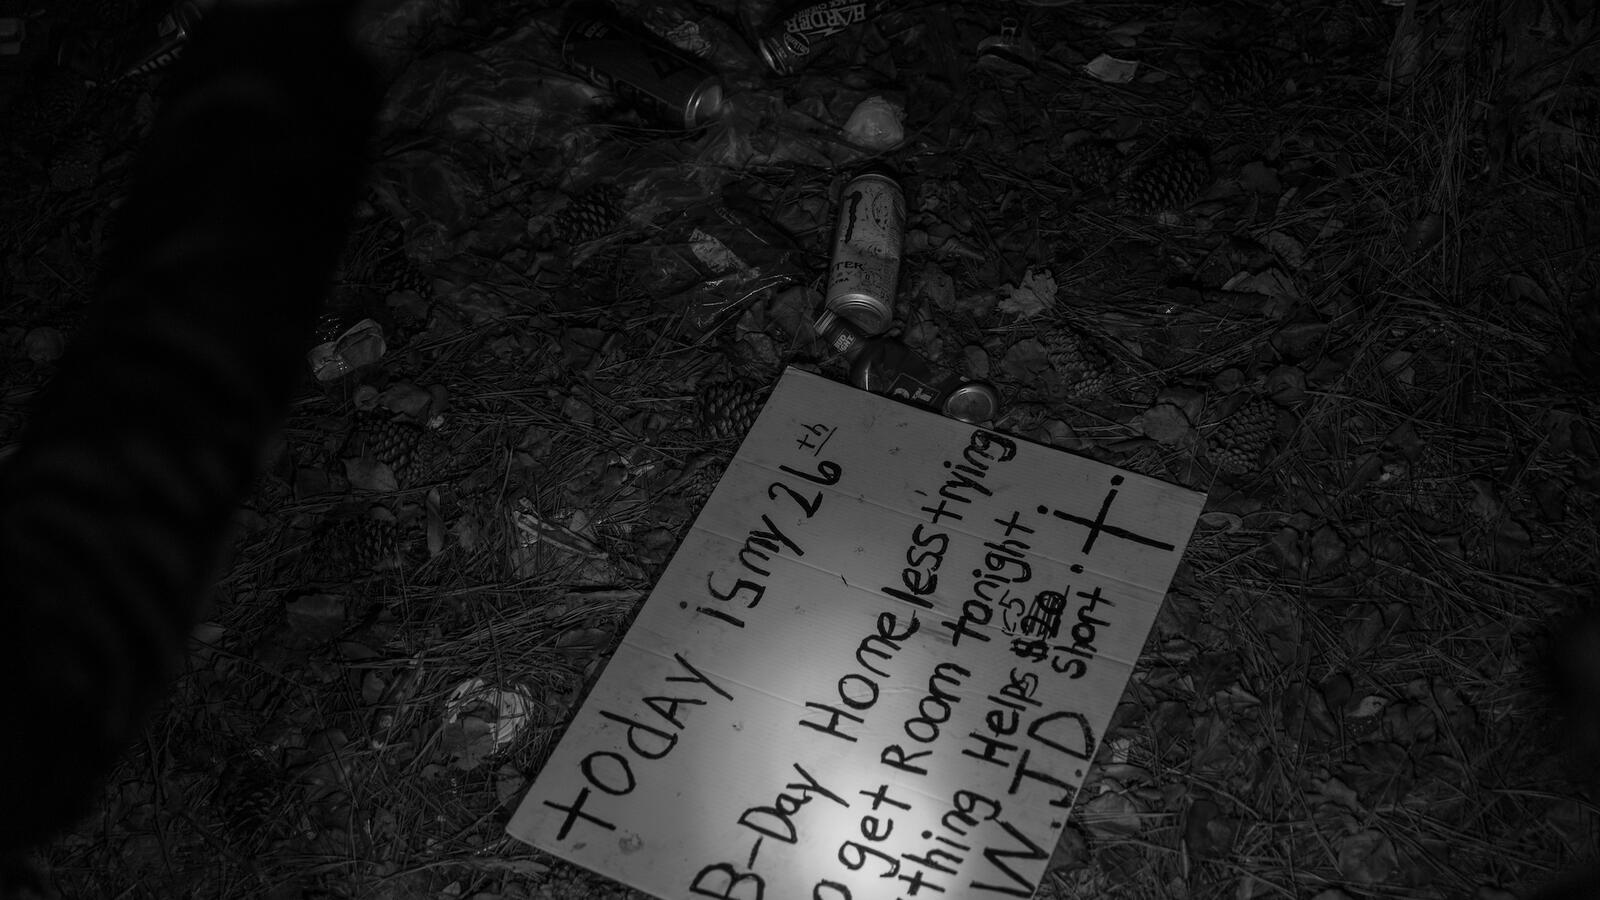 HARDER
BUD
LIGHT
today is my 26th
B-Day Homeless trying
get Room tonight
thing Helps $ 5
short
W.J.D